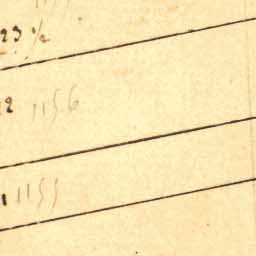 23 ½
2 1156
1 1155